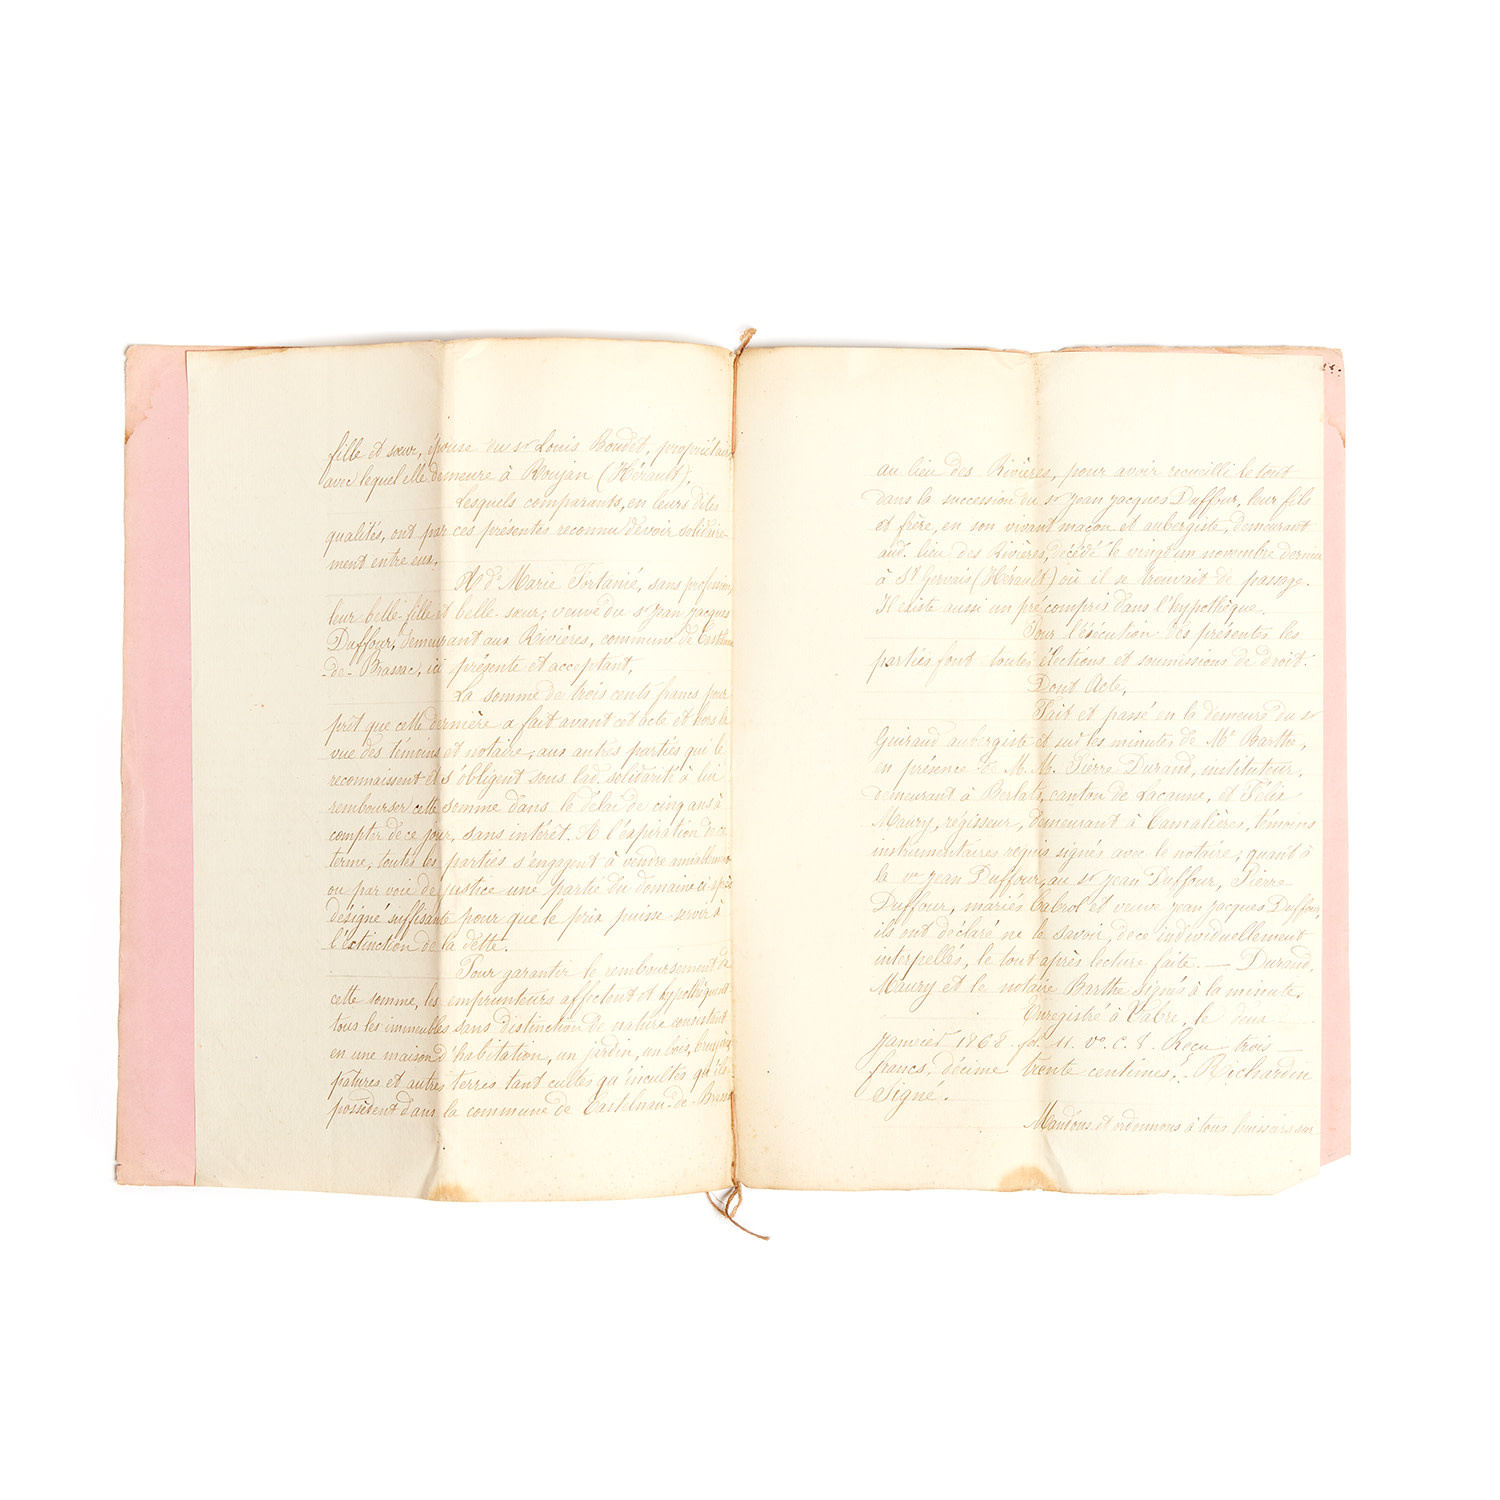 fille et sœur, épouse du sr Louis Boudet, propriétaire,
avec lequel elle demeure à Roujan (Hérault),
Lesquels comparants, en leurs dites
qualités, ont par ces présentes reconnu devoir solidaire-
ment entre eux,
A de Marie Fortanié, sans profession,
leur belle-fille et belle-sœur, veuve du sr Jean Jacques
Duffour, demeurant aux Rivières, commune de Castelnau
-de-Brassac, ici présente et acceptant,
La somme de trois cents francs pour
prêt que cette dernière a fait avant cet acte et hors la
vue des témoins et notaire, aux autres parties qui le
reconnaissent et s'obligent sous lad. solidarité à lui
rembourser cette somme dans le délai de cinq ans à
compter de ce jour, sans intérêt. A l'expiration de ce
terme, toutes les parties s'engagent à vendre amiablement
ou par voie de justice une partie du domaine ci-après
désigné suffisante pour que le prix puisse servir à
l'extinction de la dette.
Pour garantir le remboursement de
cette somme, les emprunteurs affectent et hypothèquent
tous les immeubles sans distinction de nature consistant
en une maison d'habitation, un jardin, un bois, bruyères
patures et autres terres tant cultes qu'incultes qu'ils
possèdent dans la commune de Castelnau-de-Brassac
au lieu des Rivières, pour avoir recueilli le tout
dans la succession du sr Jean Jacques Duffour, leur fils
et frère, en son vivant maçon et aubergiste, demeurant
aud. lieu des Rivières, décédé le vingt un novembre dernier
à St Gervais (Hérault) où il se trouvait de passage.
Il existe aussi un pré compris dans l'hypothèque.
Pour l'exécution des présentes les
parties font toutes élections et soumissions de droit.
Dont Acte,
Fait et passé en la demeure du sr
Guiraud aubergiste et sur les minutes de Me Barthe,
en présence de M.M. Pierre Durand, instituteur,
demeurant à Berlats, canton de Lacaune, et Félix
Maury, régisseur, demeurant à Camalières, témoins
instrumentaires requis signés avec le notaire; quant à
la ve Jean Duffour, au sr Jean Duffour, Pierre
Duffour, mariés Cabrol et veuve Jean Jacques Duffour,
ils ont déclaré ne le savoir, de ce individuellement
interpellés, le tout après lecture faite. — Durand,
Maury et le notaire Barthe signés à la minute.
Enregistré à Vabre, le deux
janvier 1868. fol. 11. Vo. C. 8. Reçu trois
francs, décime trente centimes. Richardin
signé.
Mandons et ordonnons à tous huissiers sur